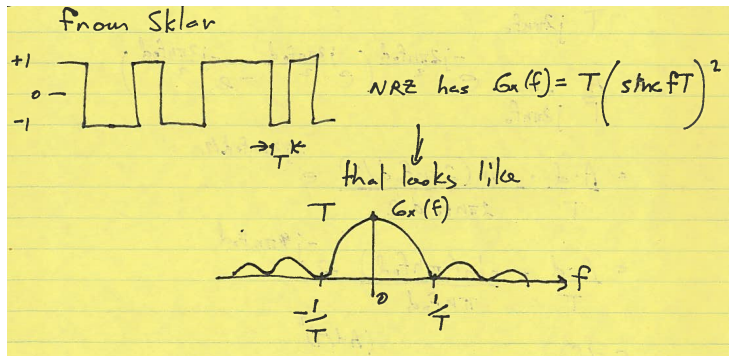 From Sklar
+1
0
-1
NRZ has Gx(f) = T(sinc fT)²
T
that looks like
T Gx(f)
f
0
-1/T 1/T